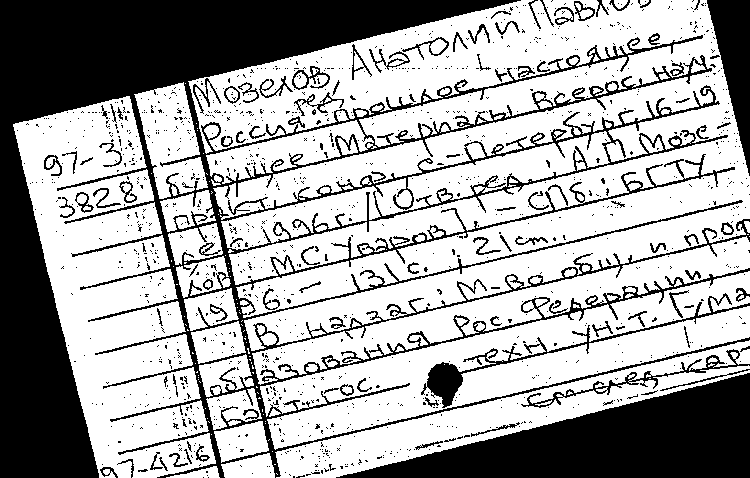 Мозелов, Анатолий Павлов
ред.
97-3 Россия: прошлое, настоящее,
3828 будущее: Материалы Всерос. науч.-
практ. конф., С.-Петербург, 16-19
дек. 1996г. / [Отв. ред.: А.П. Мозе-
лов, М.С. Уваров]. - СПб.: БГТУ,
1996. - 131с.; 21см..
В надзаг.: М-во общ. и проф
образования Рос. Федерации,
Балт. гос. техн. ун-т. Гума
См след кар
97-4216